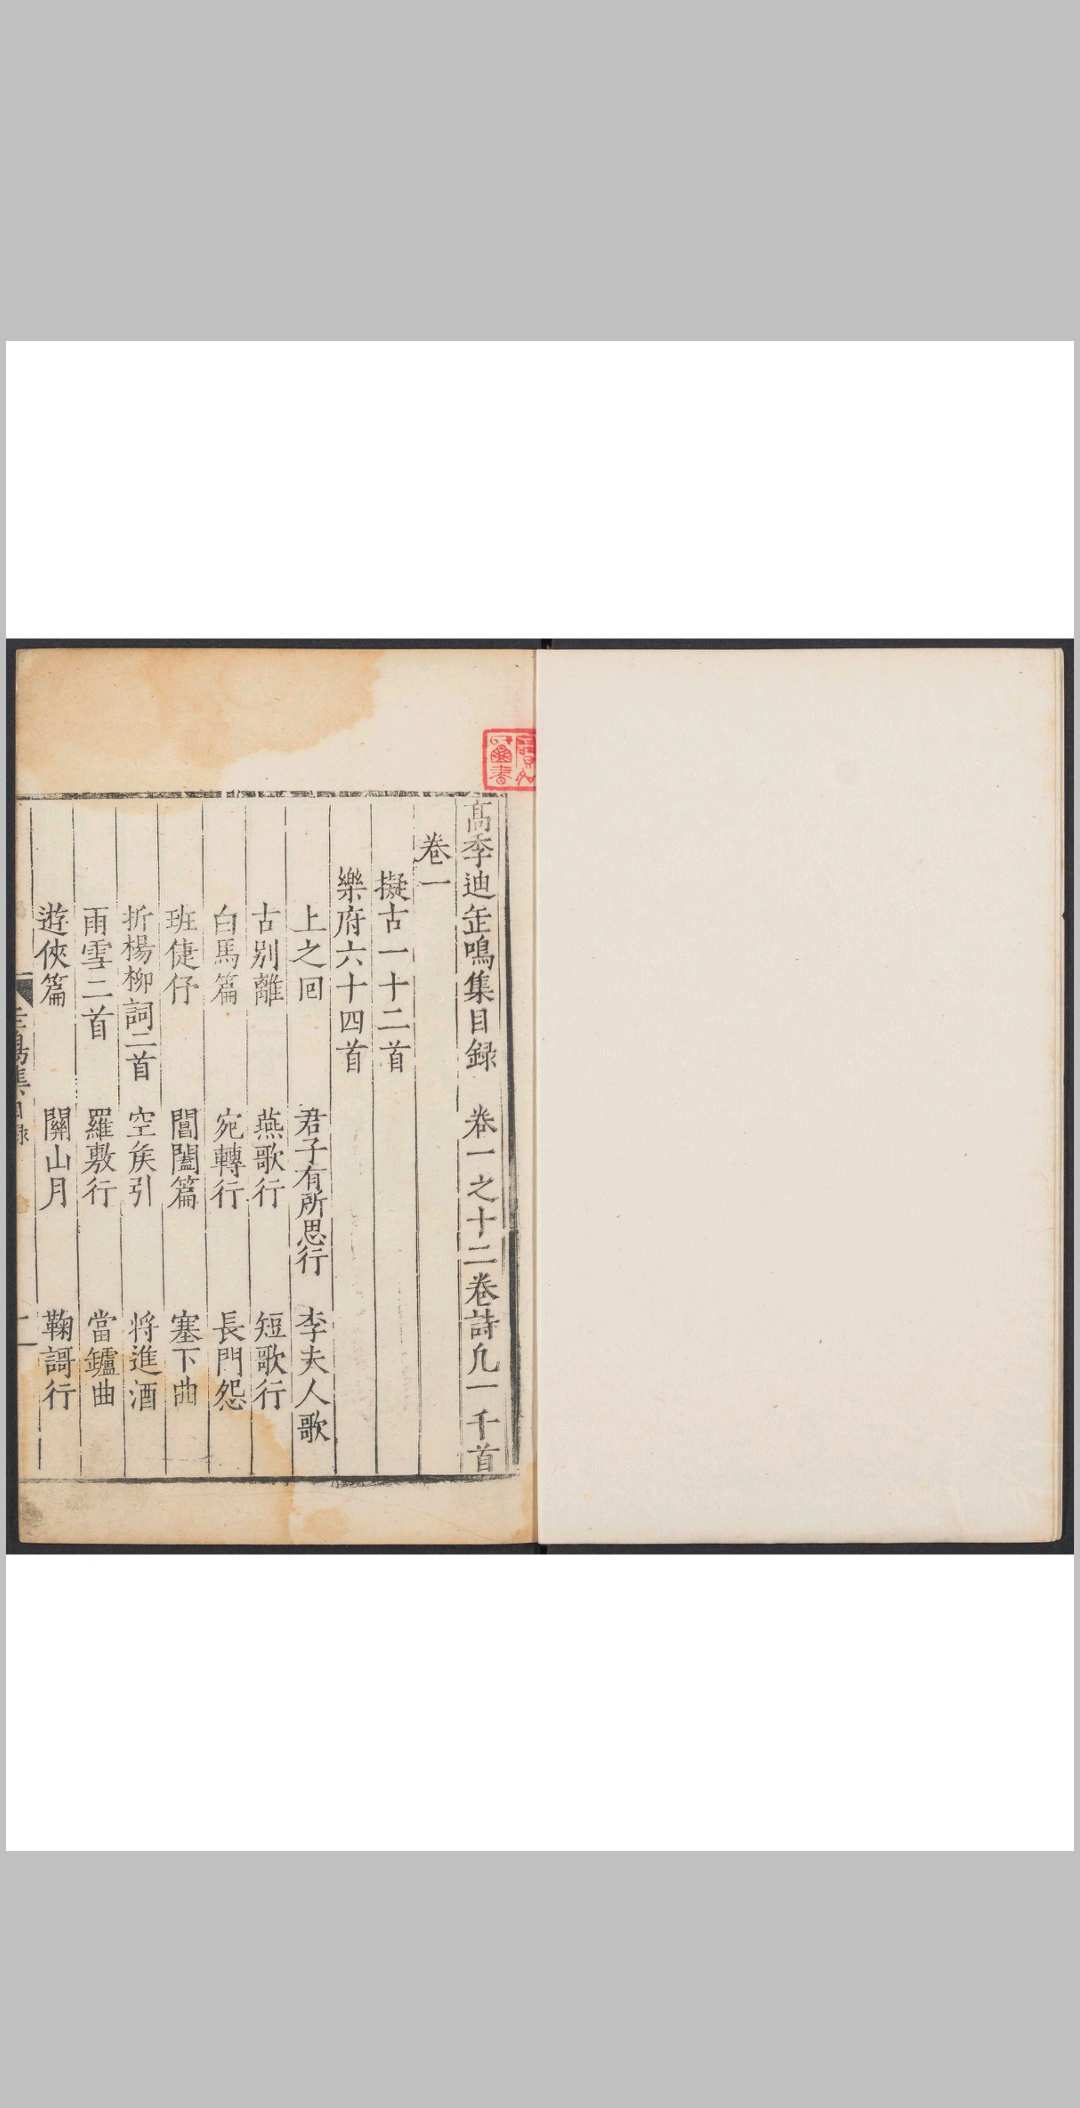 高季迪缶鳴集目録　卷一之十二卷詩凡一千首
卷一
擬古一十二首
樂府六十四首
上之回　君子有所思行　李夫人歌
古别離　燕歌行　短歌行
白馬篇　宛轉行　長門怨
班倢伃　閶闔篇　塞下曲
折楊柳詞二首　空矦引　将進酒
雨雪二首　羅敷行　當鑪曲
遊俠篇　關山月　鞠謌行